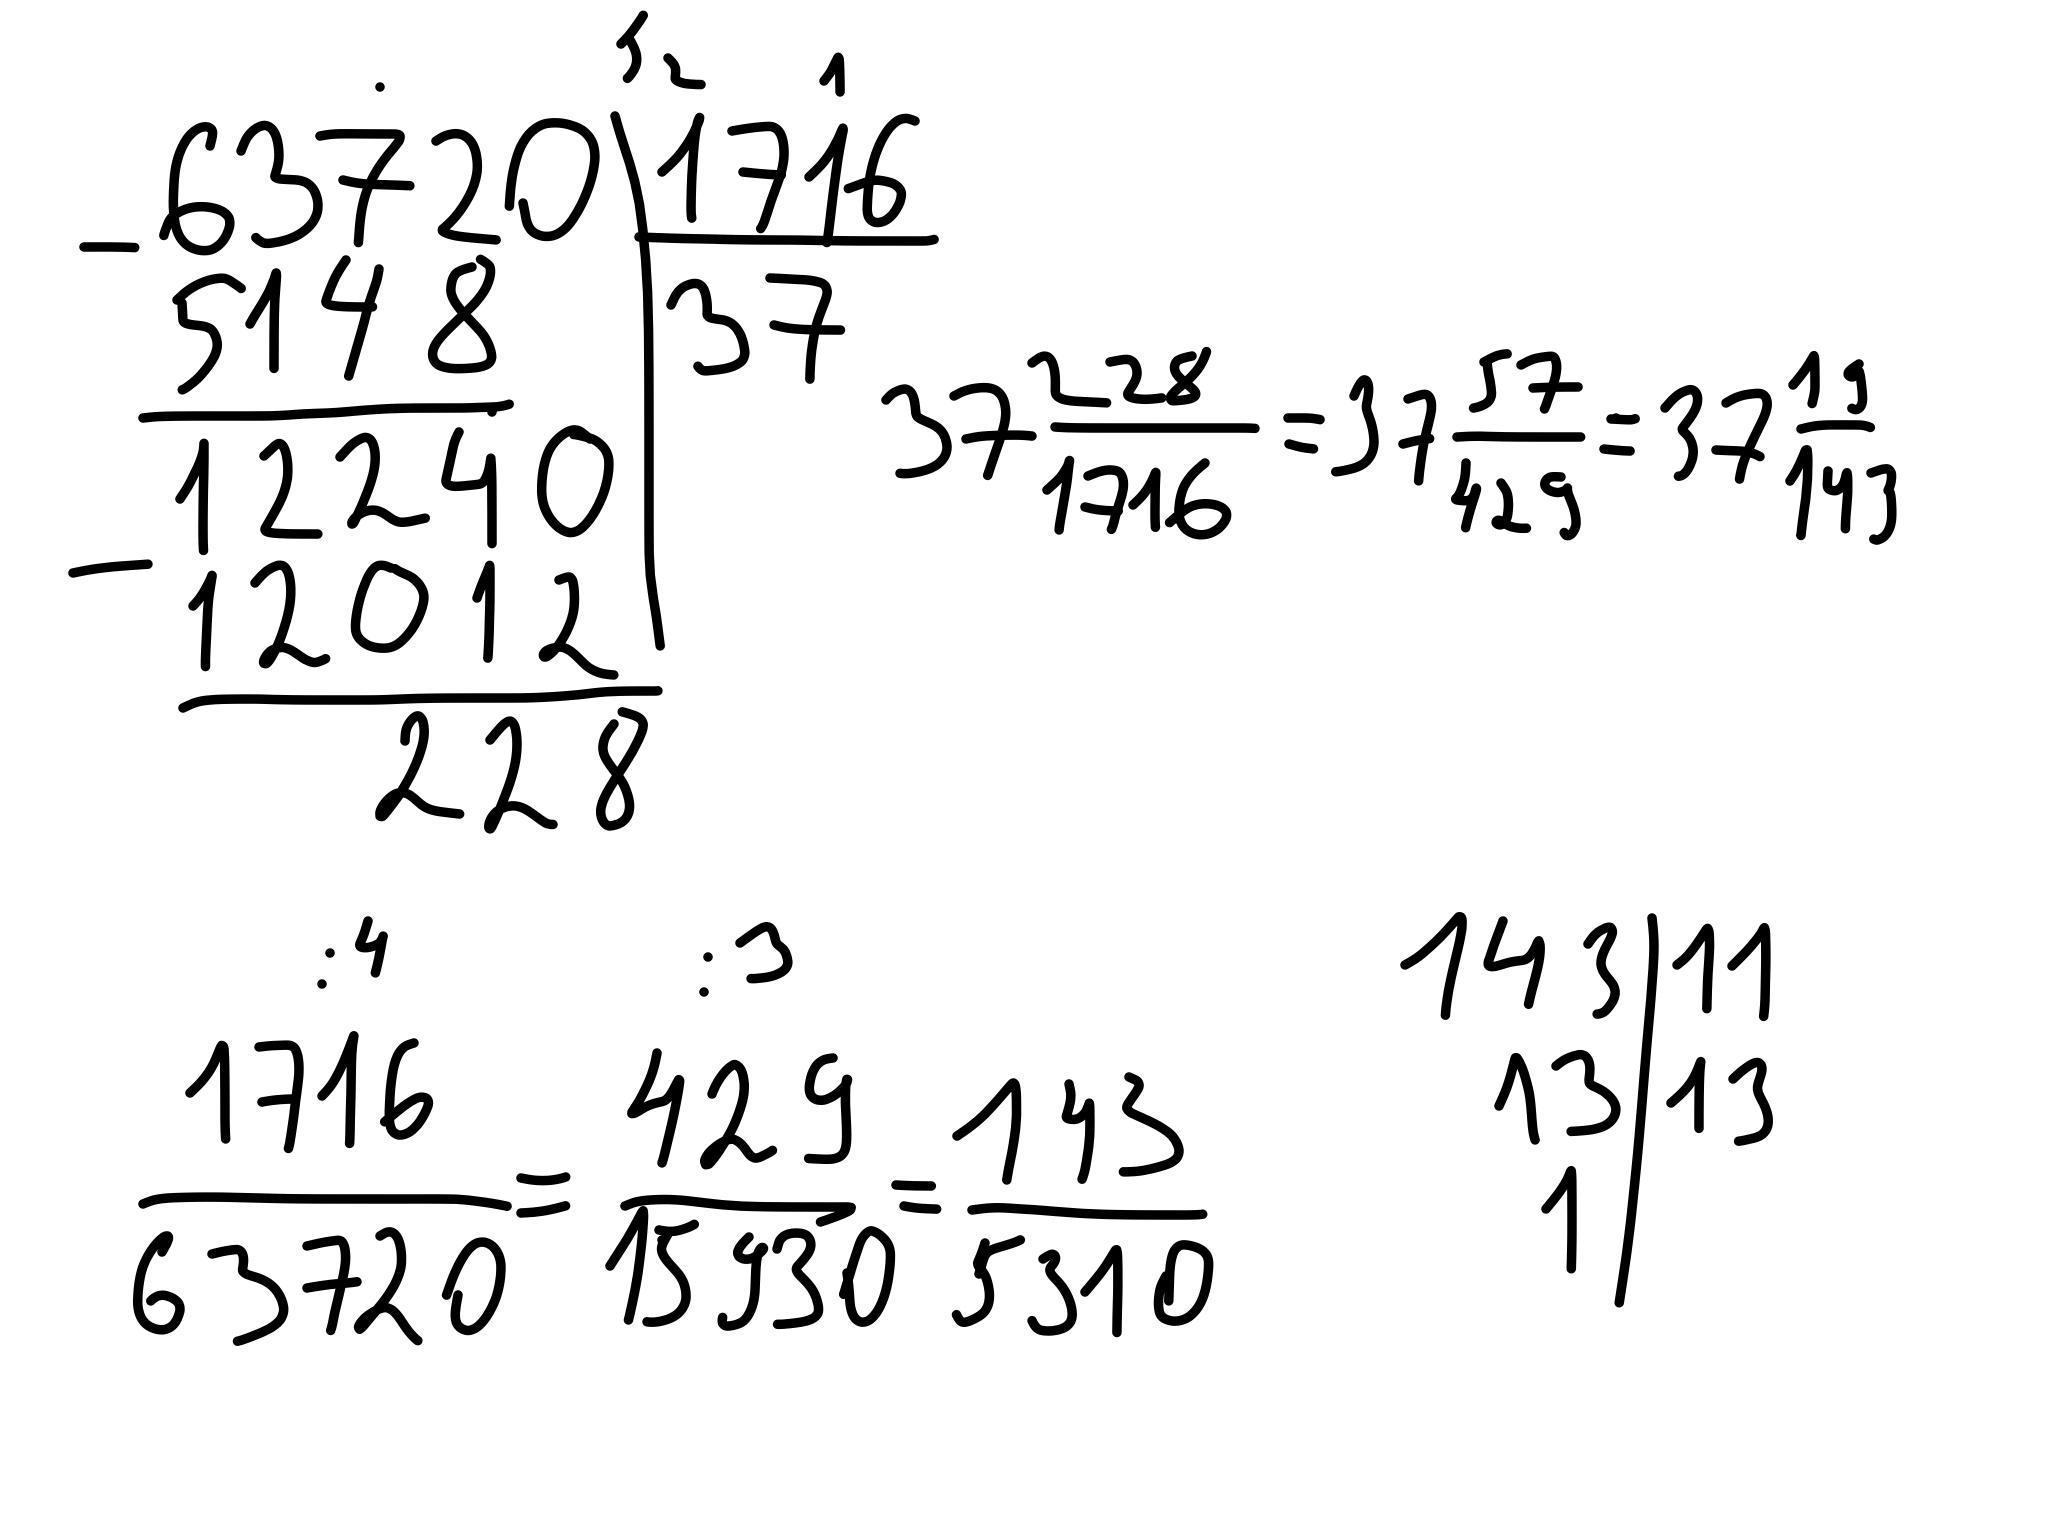 5 2 1
63720 | 1716
- 5148 | 37
37 228/1716 = 37 57/429 = 37 19/143
12240
- 12012
228
:4 :3
1716/63720 = 429/15930 = 143/5310
143 | 11
13 | 13
1